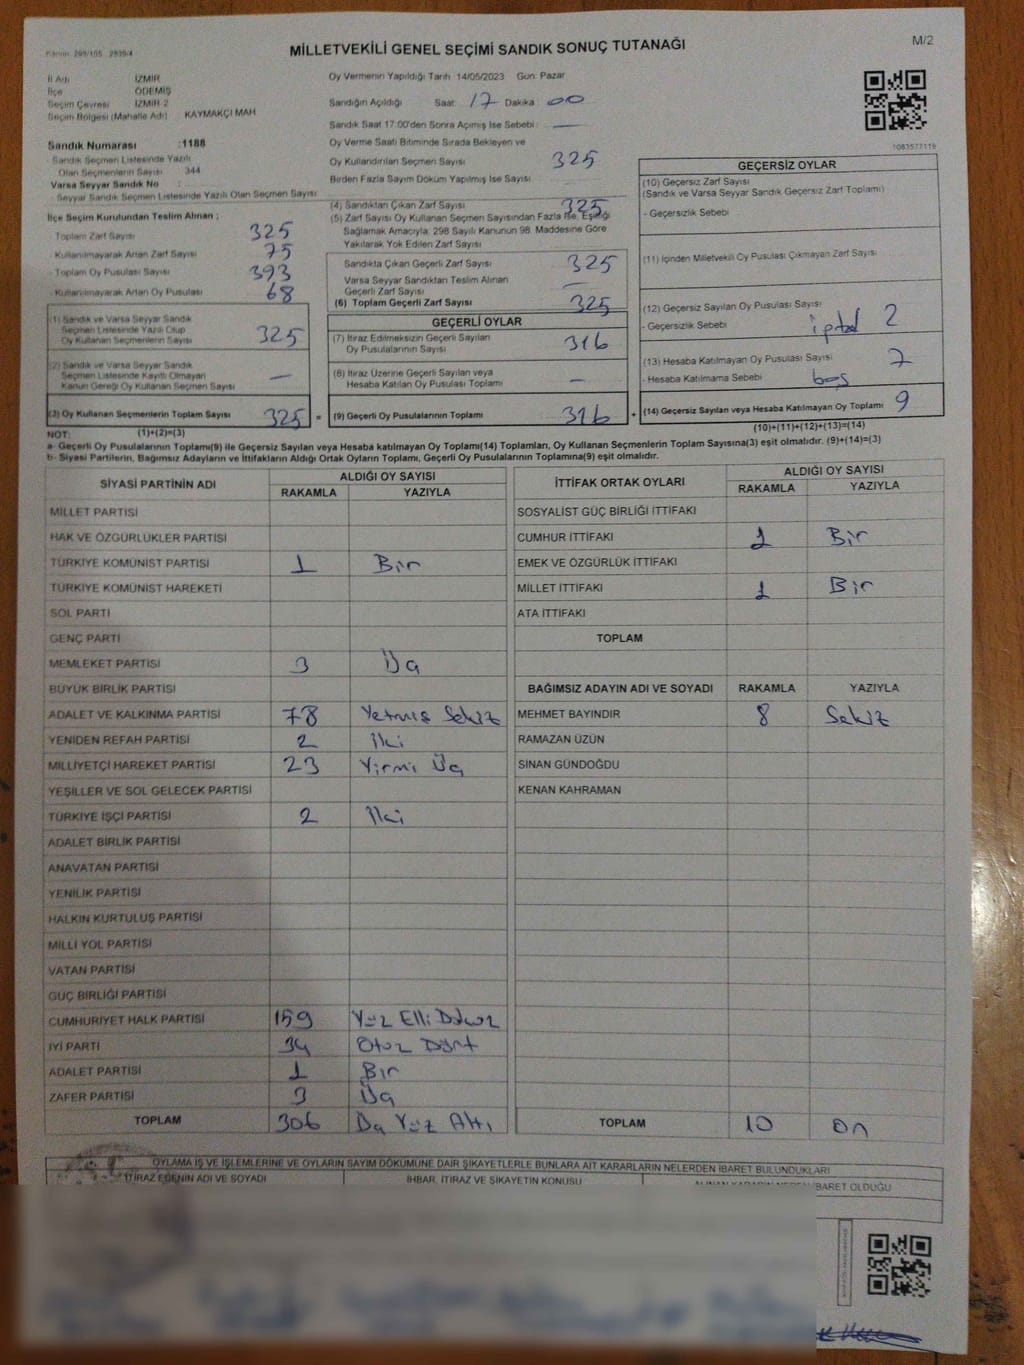 Kanun: 298/105 2839/4
MİLLETVEKİLİ GENEL SEÇİMİ SANDIK SONUÇ TUTANAĞI
M/2
İl Adı İZMİR
İlçe ÖDEMİŞ
Seçim Çevresi İZMİR-2
Seçim Bölgesi (Mahalle Adı) KAYMAKÇI MAH
Sandık Numarası :1188
- Sandık Seçmen Listesinde Yazılı
Olan Seçmenlerin Sayısı : 344
Varsa Seyyar Sandık No :
- Seyyar Sandık Seçmen Listesinde Yazılı Olan Seçmen Sayısı:
İlçe Seçim Kurulundan Teslim Alınan ;
- Toplam Zarf Sayısı 325
- Kullanılmayarak Artan Zarf Sayısı 75
- Toplam Oy Pusulası Sayısı 393
- Kullanılmayarak Artan Oy Pusulası 68
(1) Sandık ve Varsa Seyyar Sandık
Seçmen Listesinde Yazılı Olup
Oy Kullanan Seçmenlerin Sayısı 325
(2) Sandık ve Varsa Seyyar Sandık
Seçmen Listesinde Kayıtlı Olmayan
Kanun Gereği Oy Kullanan Seçmen Sayısı —
(3) Oy Kullanan Seçmenlerin Toplam Sayısı 325 =
(1)+(2)=(3)
Oy Vermenin Yapıldığı Tarih 14/05/2023 Gün: Pazar
Sandığın Açıldığı Saat: 17 Dakika 00
Sandık Saat 17:00'den Sonra Açılmış İse Sebebi : —
Oy Verme Saati Bitiminde Sırada Bekleyen ve
Oy Kullandırılan Seçmen Sayısı 325
Birden Fazla Sayım Döküm Yapılmış İse Sayısı
(4) Sandıktan Çıkan Zarf Sayısı 325
(5) Zarf Sayısı Oy Kullanan Seçmen Sayısından Fazla İse, Eşitliği
Sağlamak Amacıyla; 298 Sayılı Kanunun 98. Maddesine Göre
Yakılarak Yok Edilen Zarf Sayısı
Sandıkta Çıkan Geçerli Zarf Sayısı 325
Varsa Seyyar Sandıktan Teslim Alınan
Geçerli Zarf Sayısı —
(6) Toplam Geçerli Zarf Sayısı 325
GEÇERLİ OYLAR
(7) İtiraz Edilmeksizin Geçerli Sayılan
Oy Pusulalarının Sayısı 316
(8) İtiraz Üzerine Geçerli Sayılan veya
Hesaba Katılan Oy Pusulası Toplamı —
(9) Geçerli Oy Pusulalarının Toplamı 316 +
1083577119
GEÇERSİZ OYLAR
(10) Geçersiz Zarf Sayısı
(Sandık ve Varsa Seyyar Sandık Geçersiz Zarf Toplamı)
- Geçersizlik Sebebi
(11) İçinden Milletvekili Oy Pusulası Çıkmayan Zarf Sayısı
(12) Geçersiz Sayılan Oy Pusulası Sayısı
- Geçersizlik Sebebi iptal 2
(13) Hesaba Katılmayan Oy Pusulası Sayısı 7
- Hesaba Katılmama Sebebi boş
(14) Geçersiz Sayılan veya Hesaba Katılmayan Oy Toplamı 9
(10)+(11)+(12)+(13)=(14)
NOT:
a- Geçerli Oy Pusulaları Toplamı(9) ile Geçersiz Sayılan veya Hesaba katılmayan Oy Toplamı(14) Toplamları, Oy Kullanan Seçmenlerin Toplam Sayısına(3) eşit olmalıdır. (9)+(14)=(3)
b- Siyasi Partilerin, Bağımsız Adayların ve İttifakların Aldığı Ortak Oyların Toplamı, Geçerli Oy Pusulalarının Toplamına(9) eşit olmalıdır.
SİYASİ PARTİNİN ADI ALDIĞI OY SAYISI
RAKAMLA YAZIYLA
MİLLET PARTİSİ
HAK VE ÖZGÜRLÜKLER PARTİSİ
TÜRKİYE KOMÜNİST PARTİSİ 1 Bir
TÜRKİYE KOMÜNİST HAREKETİ
SOL PARTİ
GENÇ PARTİ
MEMLEKET PARTİSİ 3 Üç
BÜYÜK BİRLİK PARTİSİ
ADALET VE KALKINMA PARTİSİ 78 Yetmiş Sekiz
YENİDEN REFAH PARTİSİ 2 İki
MİLLİYETÇİ HAREKET PARTİSİ 23 Yirmi Üç
YEŞİLLER VE SOL GELECEK PARTİSİ
TÜRKİYE İŞÇİ PARTİSİ 2 İki
ADALET BİRLİK PARTİSİ
ANAVATAN PARTİSİ
YENİLİK PARTİSİ
HALKIN KURTULUŞ PARTİSİ
MİLLİ YOL PARTİSİ
VATAN PARTİSİ
GÜÇ BİRLİĞİ PARTİSİ
CUMHURİYET HALK PARTİSİ 159 Yüz Elli Dokuz
İYİ PARTİ 34 Otuz Dört
ADALET PARTİSİ 1 Bir
ZAFER PARTİSİ 3 Üç
TOPLAM 306 Üç Yüz Altı
İTTİFAK ORTAK OYLARI ALDIĞI OY SAYISI
RAKAMLA YAZIYLA
SOSYALİST GÜÇ BİRLİĞİ İTTİFAKI
CUMHUR İTTİFAKI 1 Bir
EMEK VE ÖZGÜRLÜK İTTİFAKI
MİLLET İTTİFAKI 1 Bir
ATA İTTİFAKI
TOPLAM
BAĞIMSIZ ADAYIN ADI VE SOYADI RAKAMLA YAZIYLA
MEHMET BAYINDIR 8 Sekiz
RAMAZAN ÜZÜN
SİNAN GÜNDOĞDU
KENAN KAHRAMAN
TOPLAM 10 On
OYLAMA İŞ VE İŞLEMLERİNE VE OYLARIN SAYIM DÖKÜMÜNE DAİR ŞİKAYETLERLE BUNLARA AİT KARARLARIN NELERDEN İBARET BULUNDUKLARI
İTİRAZ EDENİN ADI VE SOYADI İHBAR, İTİRAZ VE ŞİKAYETİN KONUSU ALINAN KARARIN NEDEN İBARET OLDUĞU